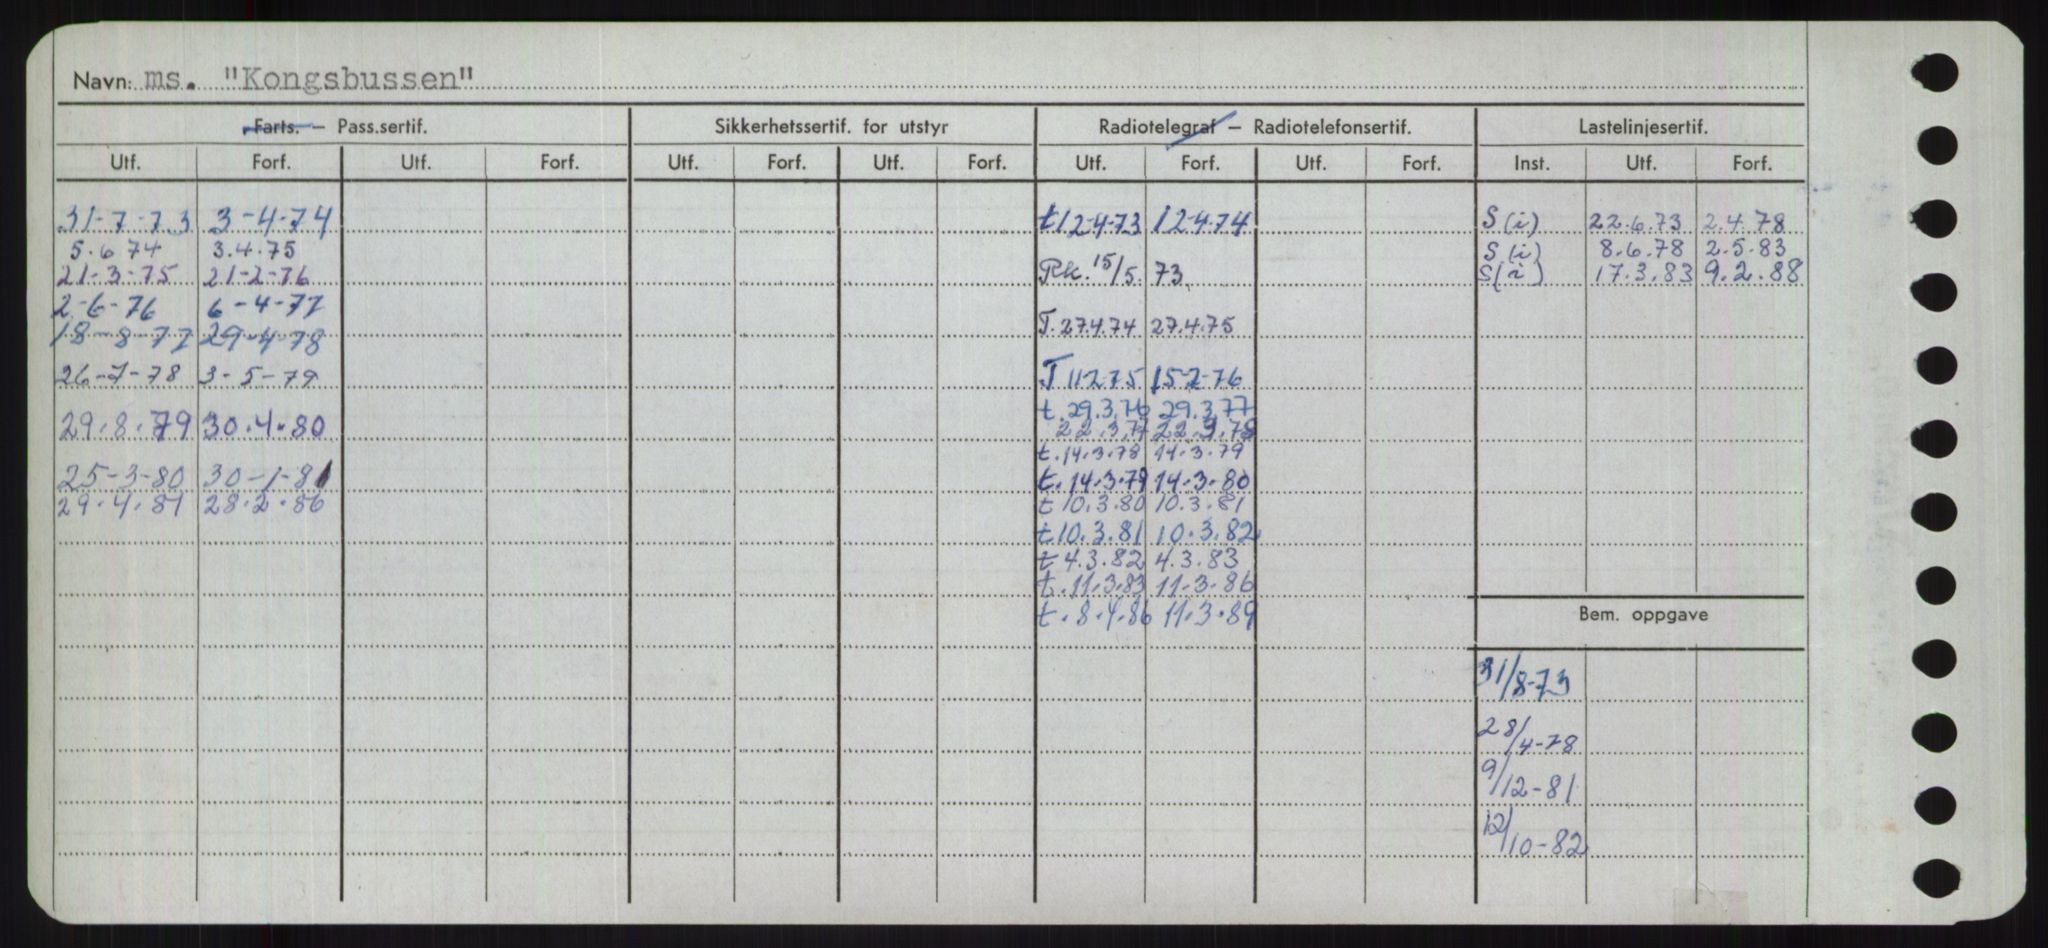 Navn: ms. "Kongsbussen"
Farts. – Pass.sertif. Sikkerhetssertif. for utstyr Radiotelegraf – Radiotelefonsertif. Lastelinjesertif.
Utf. Forf. Utf. Forf. Utf. Forf. Utf. Forf. Utf. Forf. Utf. Forf. Inst. Utf. Forf.
31-7-73 3-4-74
5.6 74 3.4.75
21-3-75 21-2-76
2-6-76 6-4-77
18-8-77 29-4-78
26-7-78 3-5-79
29.8.79 30.4.80
25-3-80 30-1-81
29.4.81 28.2.86
t12-4-73 12-4-74
Rk. 15/5. 73
T. 27.4.74 27.4.75
T 11-2-75 15-2-76
t. 29.3.76 29.3.77
22.3.77 22.3.78
t. 14.3.78 14.3.79
t. 14.3.79 14.3.80
t 10.3.80 10.3.81
t 10.3.81 10.3.82
t 4.3.82 4.3.83
t. 11.3.83 11.3.86
t. 8.4.86 11.3.89
S (i) 22.6.73 2.4.78
S (i) 8.6.78 2.5.83
S (i) 17.3.83 9.2.88
Bem. oppgave
31/8-73
28/4-78
9/12-81
12/10-82